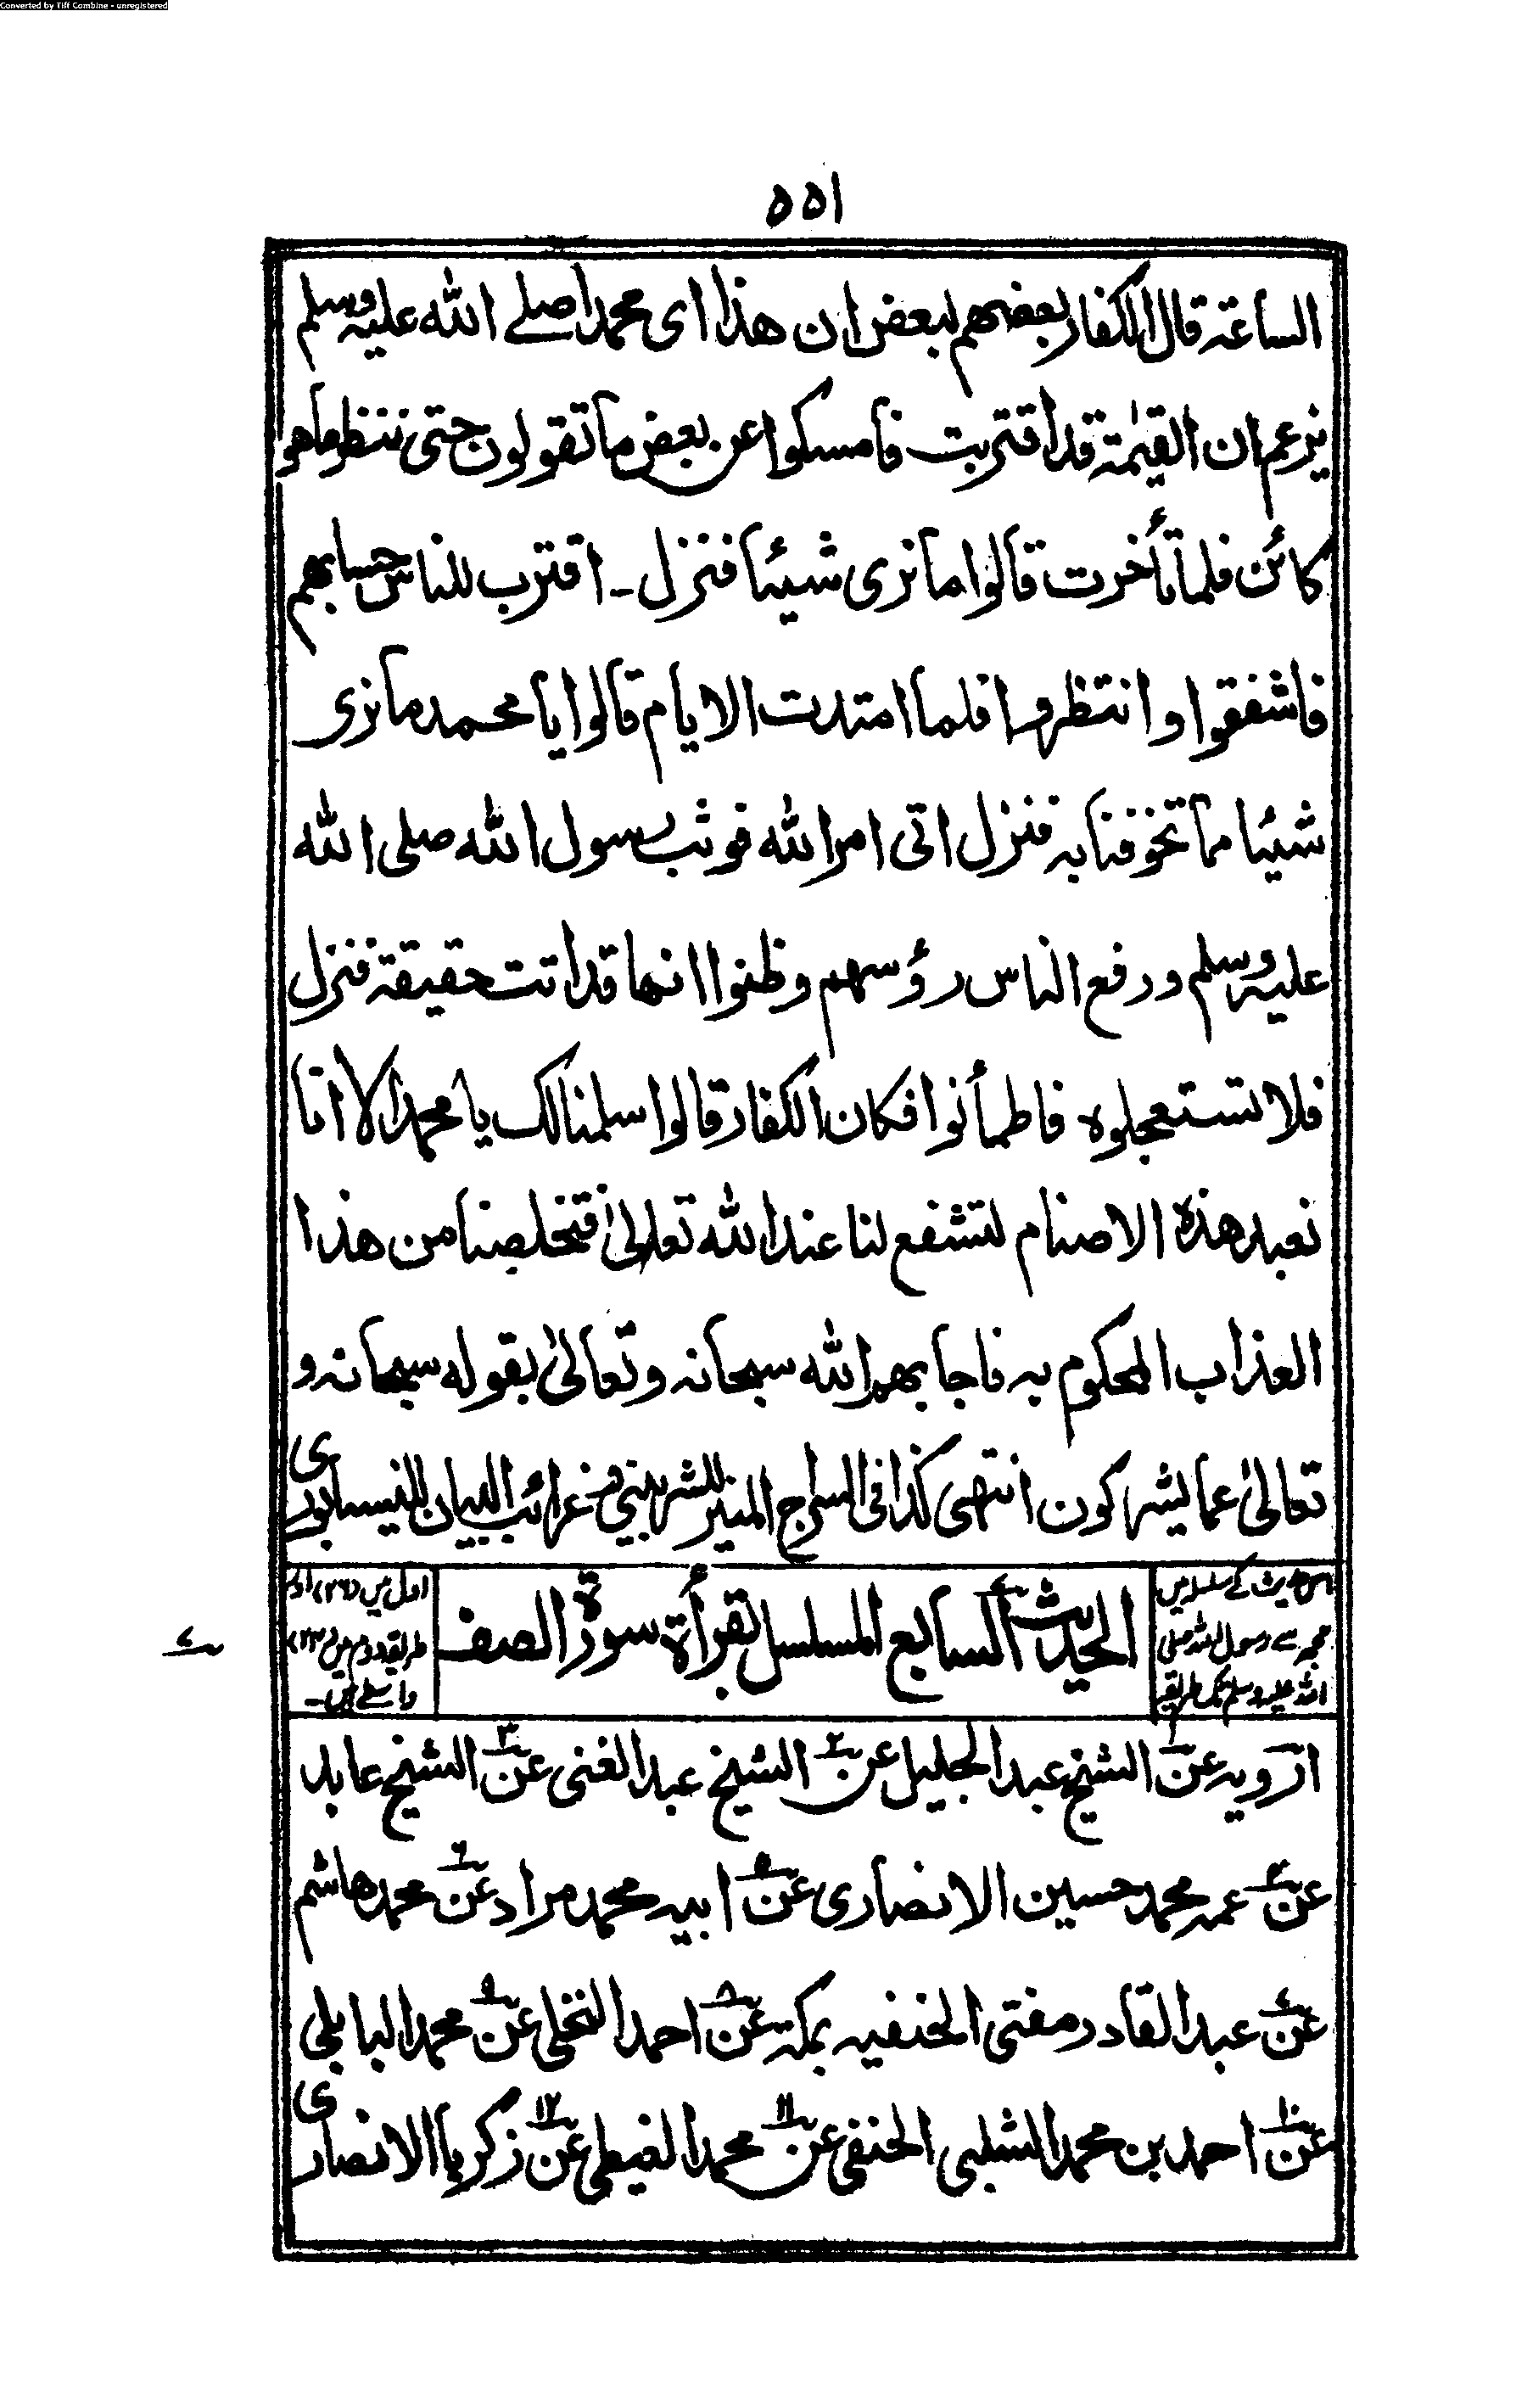 Converted by Tiff Combine - unregistered
١٥٥
الساعة قال الكفار بعضهم لبعض ان هذا اى محمدا صلے الله عليه وسلم
يزعم ان القيٰمة قد اقتربت فامسكوا عن بعض ما تقولون حتى ننظر ما هو
كائن فلما تأخرت قالوا ما نرى شيئا فنزل ـ اقترب للناس حسابهم
فاشفقوا وانتظروا فلما امتدت الايام قالوا يا محمد ما نرى
شيئا مما تخوفنا به فنزل اتى امر الله فوثب رسول الله صلى الله
عليه وسلم ورفع الناس رؤسهم وظنوا انها قد اتت حقيقة فنزل
فلا تستعجلوه فاطمأنوا فكان الكفار قالوا سلمنا لك يا محمد الا انا
نعبد هذه الاصنام لتشفع لنا عند الله تعالىٰ فتخلصنا من هذا
العذاب المحكوم به فاجابهم الله سبحانه وتعالىٰ بقوله سبحانه و
تعالىٰ عما يشركون انتهى كذا فى السراج المنير للشربينى وغرائب البيان للنيسابورى
اس حدیث کے سلسلہ میں
مجھ سے رسول اللہ صلی
اللہ علیہ وسلم تک طریقہ
الحديث السابع المسلسل بقرأة سورة الصف
اول میں (٢٦) اور
طریقہ دوم میں (٢٣)
واسطے ہیں۔
٧
ارويه عن ١ الشيخ عبد الجليل عن ٢ الشيخ عبد الغنى عن ٣ الشيخ عابد
عن ٤ عمه محمد حسين الانصارى عن ٥ ابيه محمد مراد عن ٦ محمد هاشم
عن ٧ عبد القادر مفتى الحنفيه بمكة عن ٨ احمد النخلى عن ٩ محمد البابلى
عن ١٠ احمد بن محمد الشلبى الحنفى عن ١١ محمد الغيطى عن ١٢ زكريا الانصارى